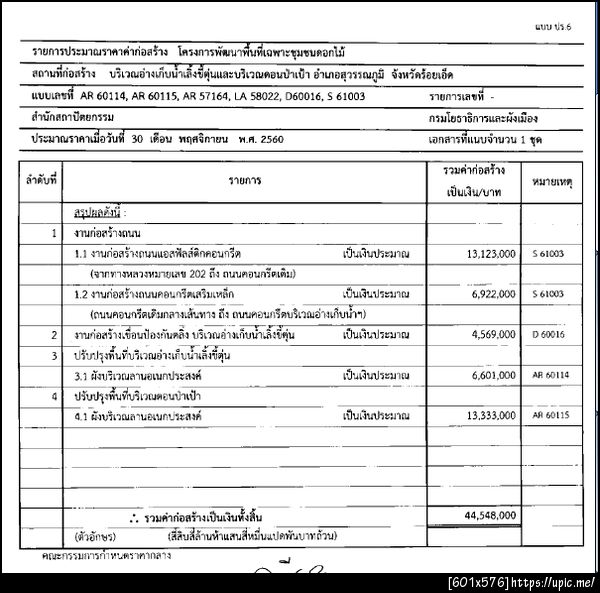 แบบ ปร.6
รายการประมาณราคาค่าก่อสร้าง โครงการพัฒนาพื้นที่เฉพาะชุมชนดอกไม้
สถานที่ก่อสร้าง บริเวณอ่างเก็บน้ำเลิ้งขี้ตุ่นและบริเวณดอนป่าเป้า อำเภอสุวรรณภูมิ จังหวัดร้อยเอ็ด
แบบเลขที่ AR 60114, AR 60115, AR 57164, LA 58022, D60016, S 61003 รายการเลขที่ -
สำนักสถาปัตยกรรม กรมโยธาธิการและผังเมือง
ประมาณราคาเมื่อวันที่ 30 เดือน พฤศจิกายน พ.ศ. 2560 เอกสารที่แนบจำนวน 1 ชุด
ลำดับที่ รายการ รวมค่าก่อสร้าง เป็นเงิน/บาท หมายเหตุ
สรุปผลดังนี้ :
1 งานก่อสร้างถนน
1.1 งานก่อสร้างถนนแอสฟัลส์ติกคอนกรีต เป็นเงินประมาณ 13,123,000 S 61003
(จากทางหลวงหมายเลข 202 ถึง ถนนคอนกรีตเดิม)
1.2 งานก่อสร้างถนนคอนกรีตเสริมเหล็ก เป็นเงินประมาณ 6,922,000 S 61003
(ถนนคอนกรีตเดิมกลางเส้นทาง ถึง ถนนคอนกรีตบริเวณอ่างเก็บน้ำฯ)
2 งานก่อสร้างเขื่อนป้องกันตลิ่ง บริเวณอ่างเก็บน้ำเลิ้งขี้ตุ่น เป็นเงินประมาณ 4,569,000 D 60016
3 ปรับปรุงพื้นที่บริเวณอ่างเก็บน้ำเลิ้งขี้ตุ่น
3.1 ผังบริเวณลานอเนกประสงค์ เป็นเงินประมาณ 6,601,000 AR 60114
4 ปรับปรุงพื้นที่บริเวณดอนป่าเป้า
4.1 ผังบริเวณลานอเนกประสงค์ เป็นเงินประมาณ 13,333,000 AR 60115
∴ รวมค่าก่อสร้างเป็นเงินทั้งสิ้น 44,548,000
(ตัวอักษร) (สี่สิบสี่ล้านห้าแสนสี่หมื่นแปดพันบาทถ้วน)
คณะกรรมการกำหนดราคากลาง
[601x576]https://upic.me/